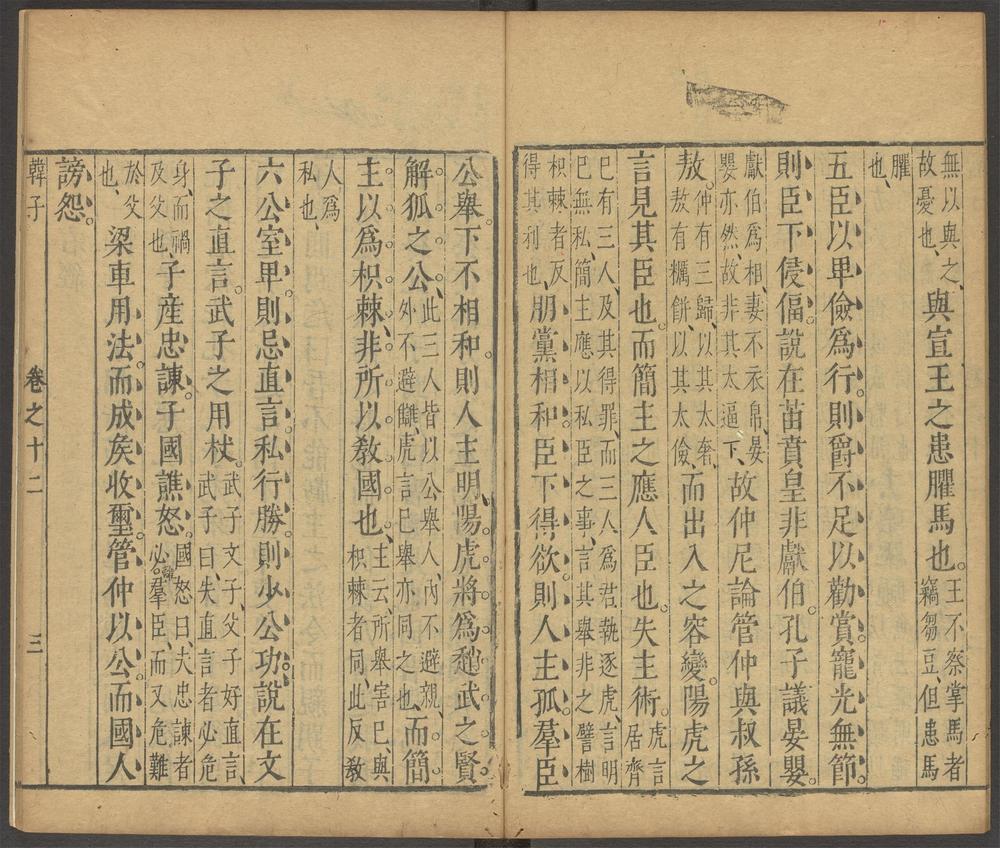 無以與之、故憂也、與宣王之患臞馬也。王不察掌馬者竊芻豆、但患馬
臞也、
五臣以卑儉爲行。則爵不足以勸賞。寵光無節。
則臣下侵偪。說在苗賁皇非獻伯。孔子議晏嬰。
獻伯爲相、妻不衣帛、晏嬰亦然、故非其太逼下、故仲尼論管仲與叔孫
敖。仲有三歸、以其太奢、敖有糲餅、以其太儉、而出入之容變。陽虎之
言見其臣也。而簡主之應人臣也。失主術。虎言居齊
已有三人、及其得罪、而三人爲君執逐虎、言明已無私、簡主應以私臣之事、言其舉非之譬樹
枳棘者反得其利也、朋黨相和。臣下得欲。則人主孤。羣臣
公舉。下不相和。則人主明、陽虎將爲趙武之賢。
解狐之公。此三人皆以公舉人、內不避親、外不避讎、虎言已舉亦同之也、而簡
主以爲枳棘、非所以教國也。主云、所舉害已、與枳棘者同、此反教
人爲私也、
六公室卑則忌直言。私行勝則少公功。說在文
子之直言。武子之用杖。武子文子、父子好直言、武子曰、夫直言者必危
身、而禍及父也、子產忠諫。子國譙怒。國怒曰、夫忠諫者必離羣臣、而又危難
於父也、梁車用法。而成矦收璽。管仲以公。而國人
謗怨。
韓子 卷之十二 三